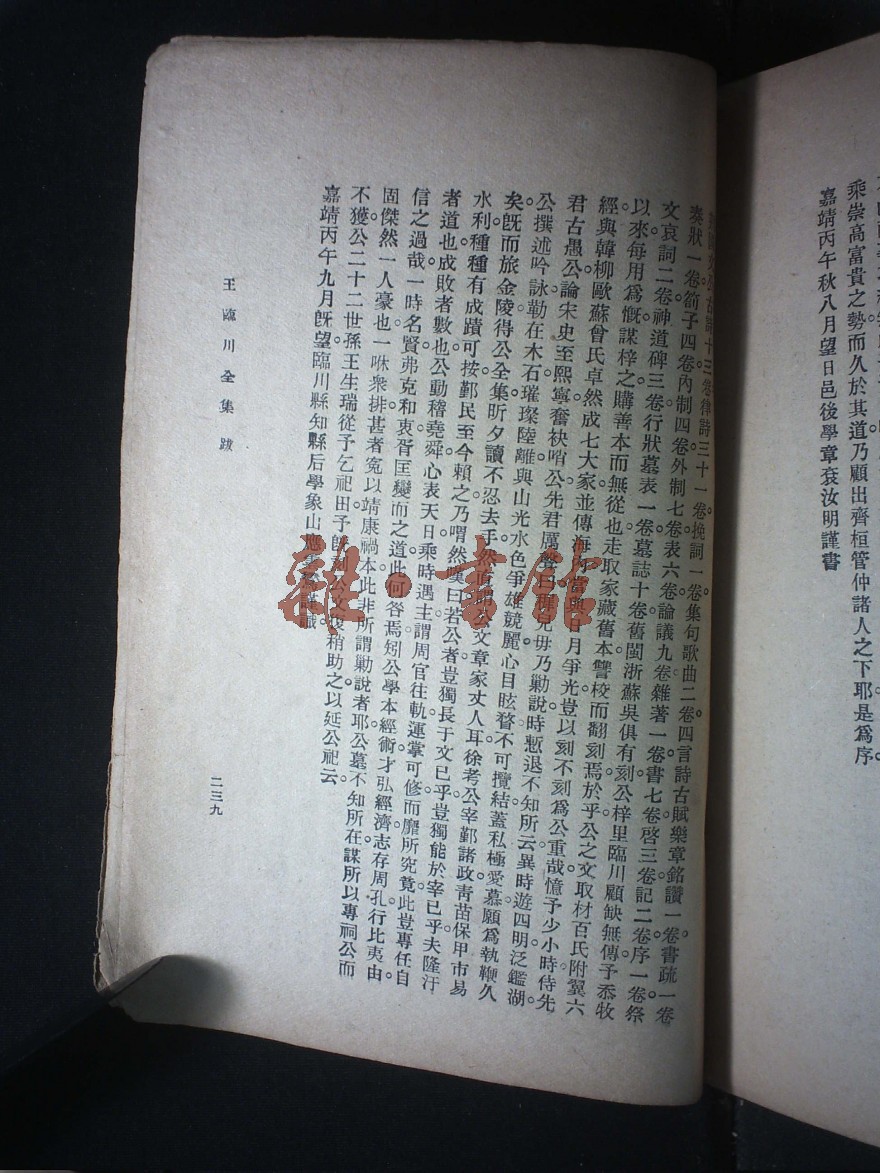 乘崇高富貴之勢而久於其道乃顧出齊桓管仲諸人之下耶是爲序
嘉靖丙午秋八月望日邑後學章袞汝明謹書
古詩十三卷律詩三十一卷。挽詞一卷。集句歌曲二卷。四言詩古賦樂章銘讚一卷。書疏一卷
奏狀一卷。劄子四卷。內制四卷。外制七卷。表六卷。論議九卷。雜著一卷。書七卷。啓三卷。記二卷。序一卷。祭
文哀詞二卷。神道碑三卷。行狀墓表一卷。墓誌十卷。舊閩浙蘇吳俱有刻。公梓里臨川顧缺無傳。予忝牧
以來。每用爲慨。謀梓之。購善本而無從也。走取家藏舊本讐校而翻刻焉。於乎。公之文取材百氏。附翼六
經。與韓柳歐蘇曾氏卓然成七大家。並傳海內。當與日月爭光。豈以刻不刻爲公重哉。憶予少小時侍先
君古愚公論宋史。至熙寧。奮袂哨公。先君厲聲曰。毋乃勦說。時慙退。不知所云。異時遊四明。泛鑑湖。
公撰述吟詠。勒在木石。璀璨陸離。與山光水色爭雄競麗。心目眩瞀。不可攬結。蓋私極愛慕。願爲執鞭久
矣。旣而旅金陵。得公全集。昕夕讀。不忍去手。然直謂公文章家丈人耳。徐考公宰鄞諸政。青苗保甲市易
水利。種種有成蹟可按。鄞民至今賴之。乃喟然嘆曰。若公者。豈獨長于文已乎。豈獨能於宰已乎。夫隆汙
者道也。成敗者數也。公動稽堯舜。心表天日。乘時遇主。謂周官往軌。運掌可修。而靡所究竟。此豈專任自
信之過哉。一時名賢弗克和衷胥匡。變而之道。此何咎焉。矧公學本經術。才弘經濟。志存周孔。行比夷由。
固傑然一人豪也。一咻衆排。甚者寃以靖康禍本。此非所謂勦說者耶。公墓不知所在。謀所以專祠公而
不獲。公二十二世孫王生瑞從予乞祀田。予旣刻公文。復稍助之。以延公祀云。
嘉靖丙午九月旣望。臨川縣知縣后學象山應雲鸑謹識
王臨川全集 跋
二三九
雜·書館